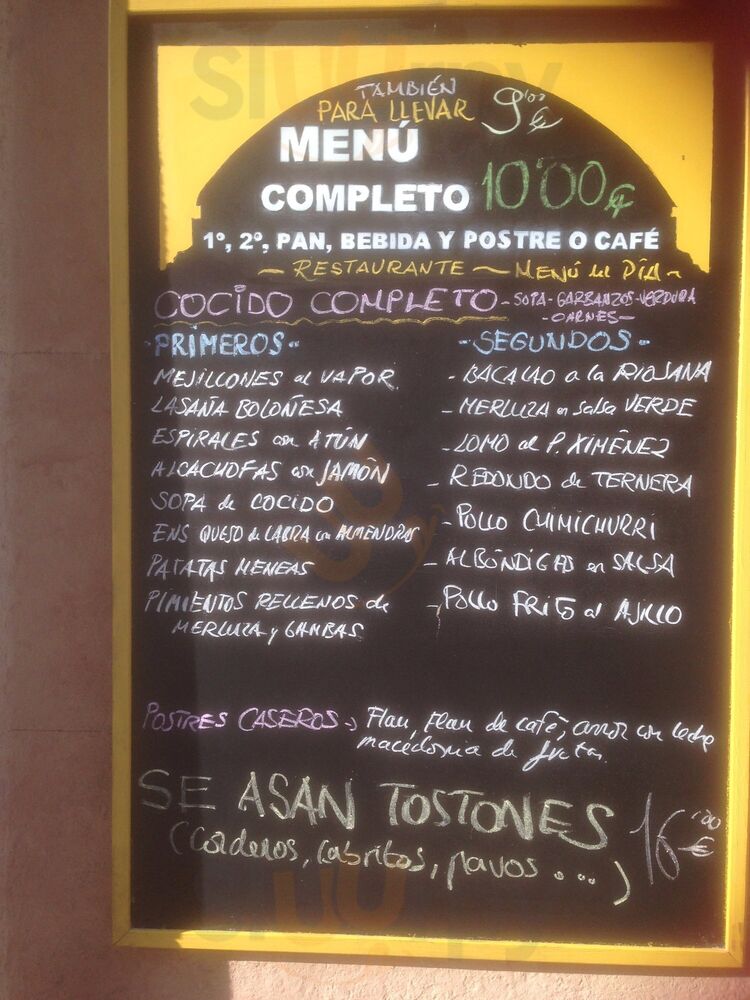 TAMBIÉN
PARA LLEVAR 9'00 €
MENÚ
COMPLETO 10'00 €
1º, 2º, PAN, BEBIDA Y POSTRE O CAFÉ
~ RESTAURANTE ~ MENÚ del DÍA ~
COCIDO COMPLETO - SOPA - GARBANZOS - VERDURA
- CARNES -
PRIMEROS
MEJILLONES al VAPOR
LASAÑA BOLOÑESA
ESPIRALES con ATÚN
ALCACHOFAS con JAMÓN
SOPA de COCIDO
ENS QUESO de CABRA con ALMENDRAS
PATATAS MENEAS
PIMIENTOS RELLENOS de
MERLUZA y GAMBAS
- SEGUNDOS -
- BACALAO a la RIOJANA
- MERLUZA en salsa VERDE
- LOMO al P. XIMÉNEZ
- REDONDO de TERNERA
- POLLO CHIMICHURRI
- ALBÓNDIGAS en SALSA
- POLLO FRITO al AJILLO
POSTRES CASEROS → Flan, Flan de café, arroz con leche
macedonia de frutas.
SE ASAN TOSTONES 16'00 €
(Corderos, Cabritos, pavos ....)